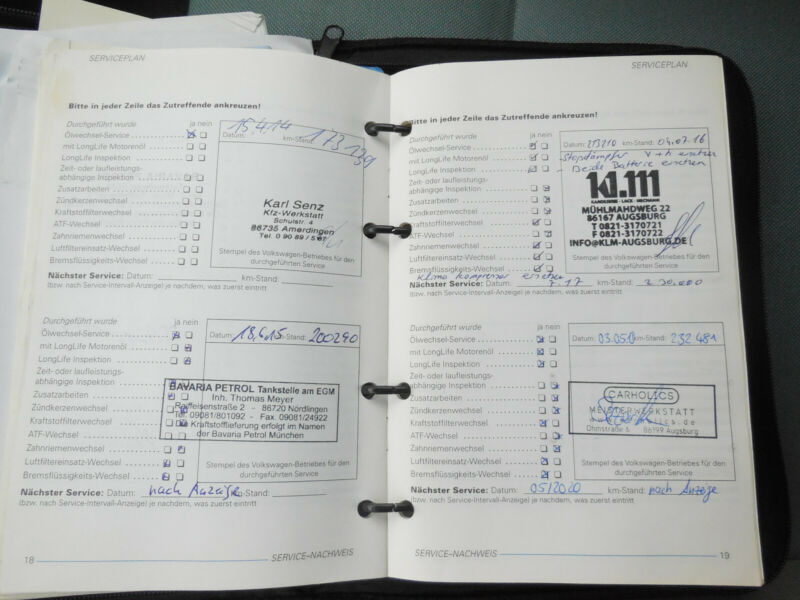 SERVICEPLAN
Bitte in jeder Zeile das Zutreffende ankreuzen!
Durchgeführt wurde ja nein
Ölwechsel-Service
mit LongLife Motorenöl
LongLife Inspektion
Zeit- oder laufleistungs-
abhängige Inspektion
Zusatzarbeiten
Zündkerzenwechsel
Kraftstofffilterwechsel
ATF-Wechsel
Zahnriemenwechsel
Luftfiltereinsatz-Wechsel
Bremsflüssigkeits-Wechsel
Datum: 15.4.14 km-Stand: 173 139
Karl Senz
Kfz-Werkstatt
Schulstr. 4
86735 Amerdingen
Tel. 0 90 89 /
Stempel des Volkswagen-Betriebes für den
durchgeführten Service
Nächster Service: Datum: km-Stand:
(bzw. nach Service-Intervall-Anzeige) je nachdem, was zuerst eintritt
Durchgeführt wurde ja nein
Ölwechsel-Service
mit LongLife Motorenöl
LongLife Inspektion
Zeit- oder laufleistungs-
abhängige Inspektion
Zusatzarbeiten
Zündkerzenwechsel
Kraftstofffilterwechsel
ATF-Wechsel
Zahnriemenwechsel
Luftfiltereinsatz-Wechsel
Bremsflüssigkeits-Wechsel
Datum: 18.6.15 km-Stand: 200290
BAVARIA PETROL Tankstelle am EGM
Inh. Thomas Meyer
Raiffeisenstraße 2 - 86720 Nördlingen
Tel. 09081/801092 - Fax. 09081/24922
Die Kraftstofflieferung erfolgt im Namen
der Bavaria Petrol München
Stempel des Volkswagen-Betriebes für den
durchgeführten Service
Nächster Service: Datum: nach Anzeige km-Stand:
(bzw. nach Service-Intervall-Anzeige) je nachdem, was zuerst eintritt
18 SERVICE–NACHWEIS
SERVICEPLAN
Bitte in jeder Zeile das Zutreffende ankreuzen!
Durchgeführt wurde ja nein
Ölwechsel-Service
mit LongLife Motorenöl
LongLife Inspektion
Zeit- oder laufleistungs-
abhängige Inspektion
Zusatzarbeiten
Zündkerzenwechsel
Kraftstofffilterwechsel
ATF-Wechsel
Zahnriemenwechsel
Luftfiltereinsatz-Wechsel
Bremsflüssigkeits-Wechsel
Datum: 213210 km-Stand: 04.07.16
Stossdämpfer V+h ersetzen
Beide Batterie ersetzen
KAROSSERIE - LACK - MECHANIK
MÜHLMAHDWEG 22
86167 AUGSBURG
T 0821-3170721
F 0821-3170722
INFO@KLM-AUGSBURG.DE
Stempel des Volkswagen-Betriebes für den
durchgeführten Service
Klima Kompressor ersetzen
Nächster Service: Datum: 7.17 km-Stand: 230.000
(bzw. nach Service-Intervall-Anzeige) je nachdem, was zuerst eintritt
Durchgeführt wurde ja nein
Ölwechsel-Service
mit LongLife Motorenöl
LongLife Inspektion
Zeit- oder laufleistungs-
abhängige Inspektion
Zusatzarbeiten
Zündkerzenwechsel
Kraftstofffilterwechsel
ATF-Wechsel
Zahnriemenwechsel
Luftfiltereinsatz-Wechsel
Bremsflüssigkeits-Wechsel
Datum: km-Stand: 232 481
CARHOLICS
MEISTERWERKSTATT
Ohmstraße 6 86199 Augsburg
Stempel des Volkswagen-Betriebes für den
durchgeführten Service
Nächster Service: Datum: 05/2020 km-Stand: nach Anzeige
(bzw. nach Service-Intervall-Anzeige) je nachdem, was zuerst eintritt
SERVICE–NACHWEIS 19